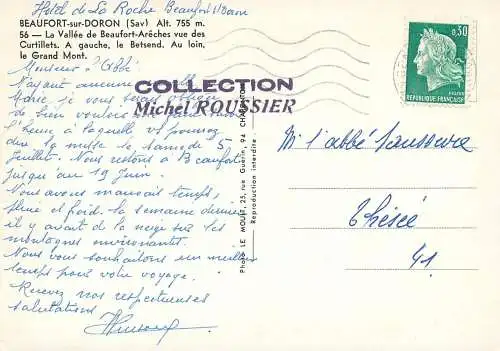 Hôtel de La Roche Beaufort s/Doron
BEAUFORT-sur-DORON (Sav) Alt. 755 m.
56 — La Vallée de Beaufort-Arêches vue des
Curtillets. A gauche, le Betsend. Au loin,
le Grand Mont.
Monsieur l'Abbé
N'ayant aucune
Marie, je vous serais
de bien vouloir
l'heure à laquelle vous pouvez
dire la messe le samedi 5
Juillet. Nous restons à Beaufort
jusqu'au 19 Juin.
Nous avons mauvais temps,
pluie et froid. la semaine dernière
il y avait de la neige sur les
montagnes environnantes.
Nous vous souhaitons un meilleur
temps pour votre voyage.
Recevez nos respectueuses
salutations
COLLECTION
Michel ROUSSIER
Photo LE MOULT, 25, rue Guérin, 94 CHARENTON
Reproduction interdite
0,30
REPUBLIQUE FRANÇAISE
M. l'abbé Saussure
Thésée
41